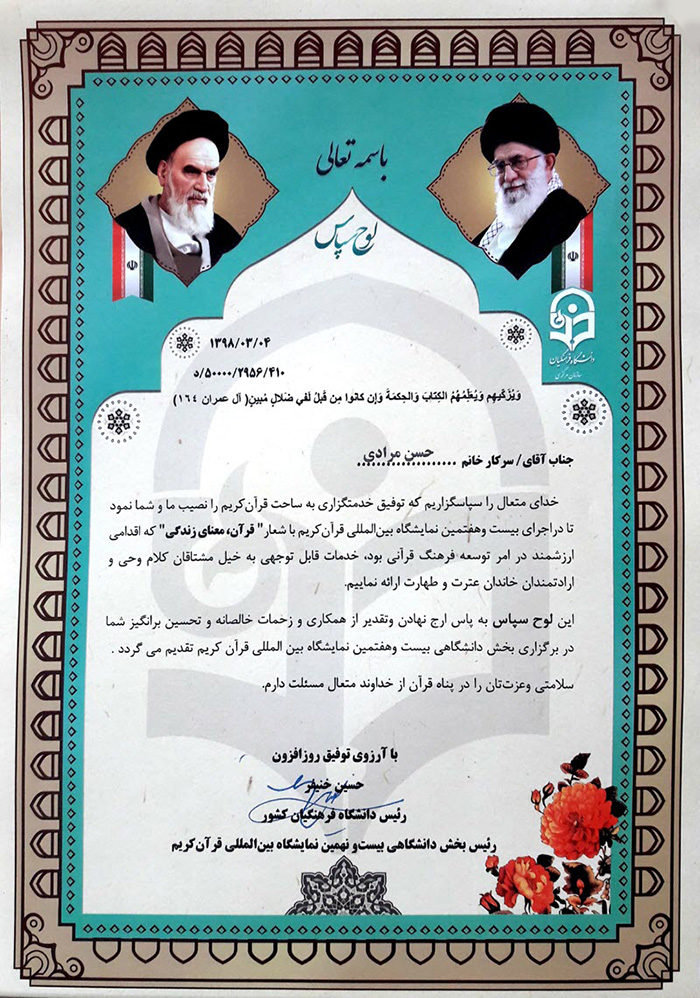 باسمه تعالی
لوح سپاس
دانشگاه فرهنگیان
سازمان مرکزی
۱۳۹۸/۰۳/۰۴
۵۰۰۰۰/۲۹۵۶/۴۱۰/د
وَيُزَكِّيهِم وَيُعَلِّمُهُمُ الكِتابَ وَالحِكمَةَ وَإِن كانوا مِن قَبلُ لَفي ضَلالٍ مُبينٍ( آل عمران ١٦٤ )
جناب آقای/ سرکار خانم حسن مرادی
خدای متعال را سپاسگزاریم که توفیق خدمتگزاری به ساحت قرآن‌کریم را نصیب ما و شما نمود
تا دراجرای بیست وهفتمین نمایشگاه بین‌المللی قرآن‌کریم با شعار" قرآن، معنای زندگی" که اقدامی
ارزشمند در امر توسعه فرهنگ قرآنی بود، خدمات قابل توجهی به خیل مشتاقان کلام وحی و
ارادتمندان خاندان عترت و طهارت ارائه نماییم.
این لوح سپاس به پاس ارج نهادن وتقدیر از همکاری و زحمات خالصانه و تحسین برانگیز شما
در برگزاری بخش دانشگاهی بیست وهفتمین نمایشگاه بین المللی قرآن کریم تقدیم می گردد .
سلامتی وعزت‌تان را در پناه قرآن از خداوند متعال مسئلت دارم.
با آرزوی توفیق روزافزون
حسین خنیفر
رئیس دانشگاه فرهنگیان کشور
رئیس بخش دانشگاهی بیست‌و نهمین نمایشگاه بین‌المللی قرآن‌کریم